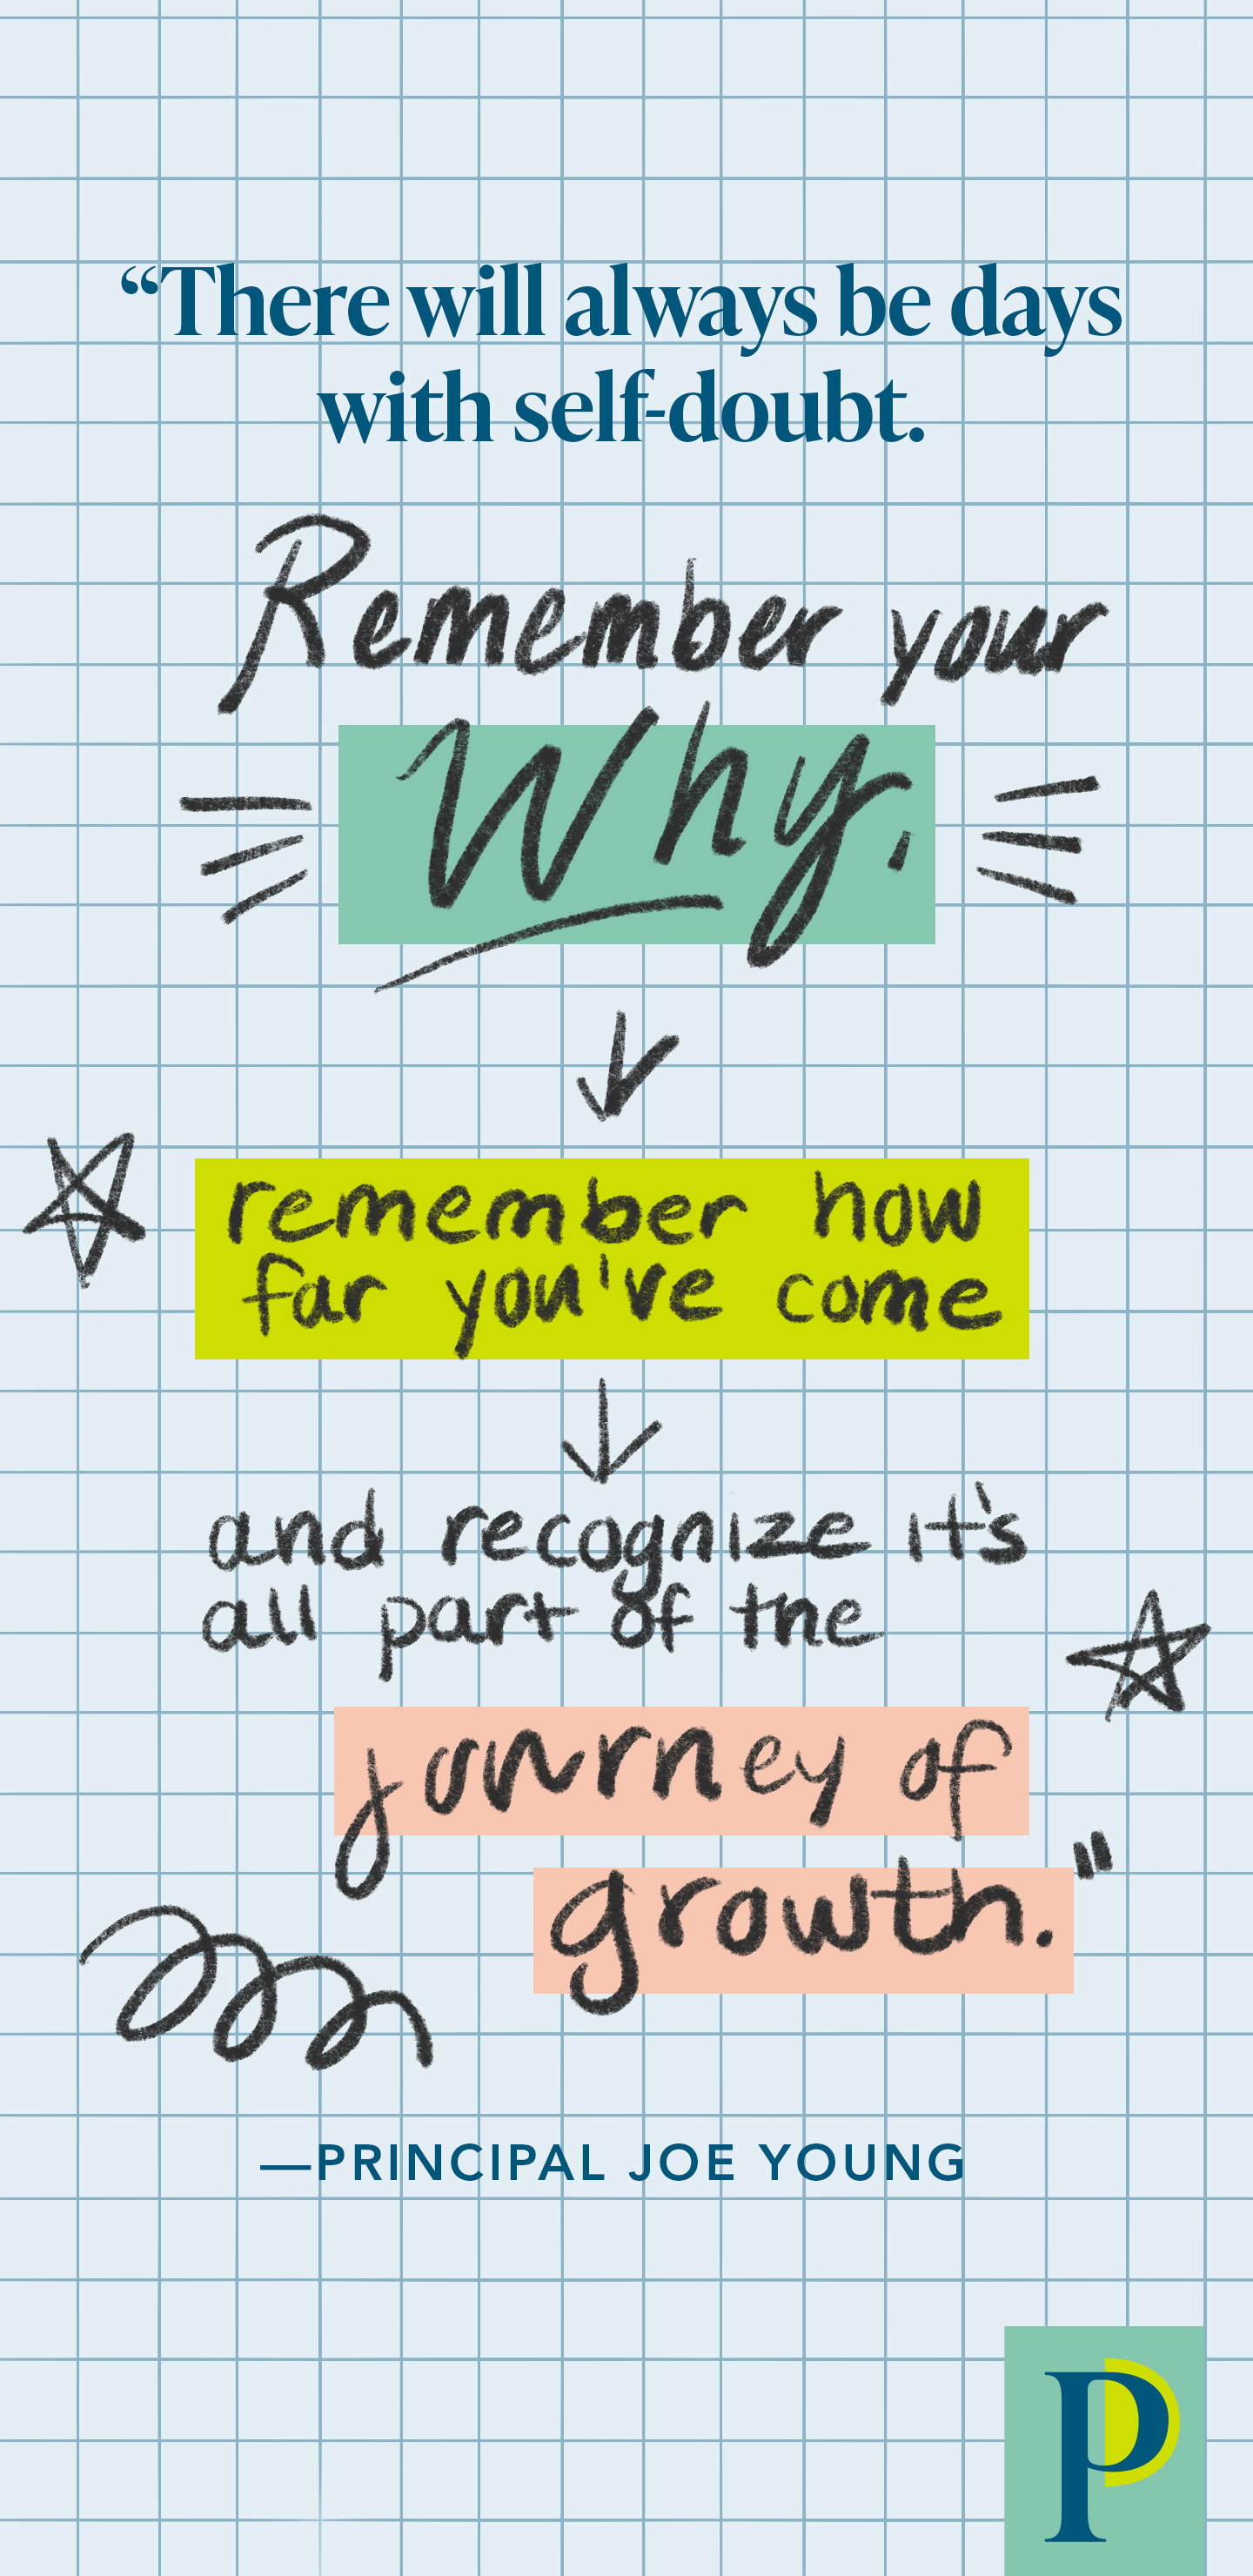 “There will always be days
with self-doubt.
Remember your
Why,
remember how
far you've come
and recognize it's
all part of the
journey of
growth."
—PRINCIPAL JOE YOUNG
P